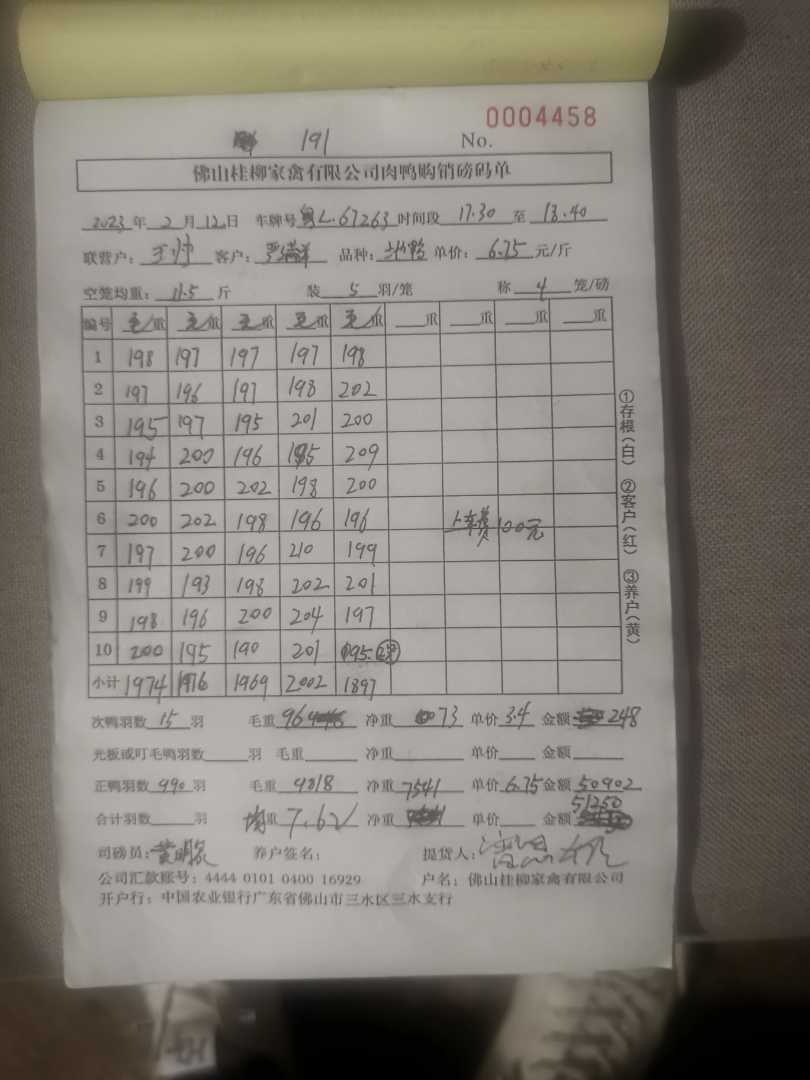 0004458
191 No.
佛山桂柳家禽有限公司肉鸭购销磅码单
2023年 2月12日 车牌号粤L.67263时间段 17.30 至 18.40
联营户：王帅 客户： 品种： 单价：6.75元/斤
空笼均重：11.5斤 装 5 羽/笼 称 4 笼/磅
编号 毛重 毛重 毛重 毛重 毛重 重 重 重 重
1 198 197 197 197 198
2 197 196 197 198 202
3 195 197 195 201 200
4 194 200 196 195 209
5 196 200 202 198 200
6 200 202 198 196 196 上车费100元
7 197 200 196 210 199
8 199 193 198 202 201
9 198 196 200 204 197
10 200 195 190 201 95.
小计 1974 1976 1969 2002 1897
次鸭羽数 15 羽 毛重 96 净重 73 单价 3.4 金额 248
光板或叮毛鸭羽数 羽 毛重 净重 单价 金额
正鸭羽数 990 羽 毛重 9818 净重 7541 单价 6.75 金额 50902
合计羽数 羽 均重 7.62 净重 单价 金额 51250
司磅员： 养户签名： 提货人：
公司汇款账号：4444 0101 0400 16929 户名：佛山桂柳家禽有限公司
开户行：中国农业银行广东省佛山市三水区三水支行
①存根(白) ②客户(红) ③养户(黄)